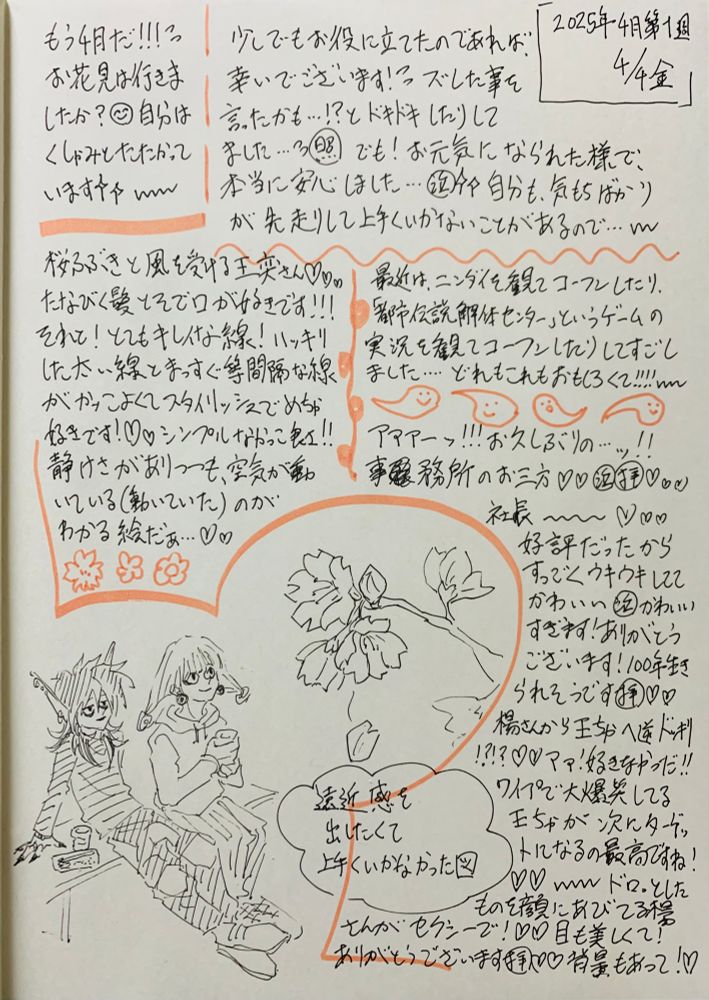 2025年4月第1週
4/4金
もう4月だ!!!っ
お花見は行きま
したか?自分は
くしゃみとたたかって
います
少しでもお役に立てたのであれば、
幸いでございます!っ ズレた事を
言ったかも…!?と ドキドキ したりして
ました…っ でも! お元気に なられた様で、
本当に安心しました… 自分も、気もちばかり
が 先走りして上手くいかないことがあるので…
桜ふぶきと風を受ける王奕さん♡♡♡
たなびく髪とそで口が好きです!!!
それと! とてもキレイな線! ハッキリ
した太い線とまっすぐ等間隔な線
がかっこよくてスタイリッシュでめちゃ
好きです!♡♡ シンプルなかっこ良さ!!
静けさがありつつも、空気が動
いている(動いていた)のが
わかる絵だぁ…♡♡
最近は、ニンダイを観てコーフンしたり、
「都市伝説解体センター」というゲームの
実況を観てコーフンしたりしてすごし
ました… どれもこれもおもしろくて!!!!
アァァーッ!!! お久しぶりの…ッ!!
事務所のお三方♡♡ 泣 拝 ♡
社長 ♡
好評だったから
すっごくウキウキしてて
かわいい 泣 かわいい
すぎます! ありがとう
ございます! 100年生き
られそうです 拝 ♡♡
楊さんから王ちゃへ逆ドッキリ
!?!?♡♡ アァ! 好きなやつだ!!
ワイプで大爆笑してる
王ちゃが 次にターゲッ
トになるの最高ですね!
♡♡ ドロッとした
ものを顔にあびてる楊
さんがセクシーで!♡♡ 目も美しくて!
ありがとうございます 拝 ♡♡ 背景もあって!♡
遠近感を
出したくて
上手くいかなかった図